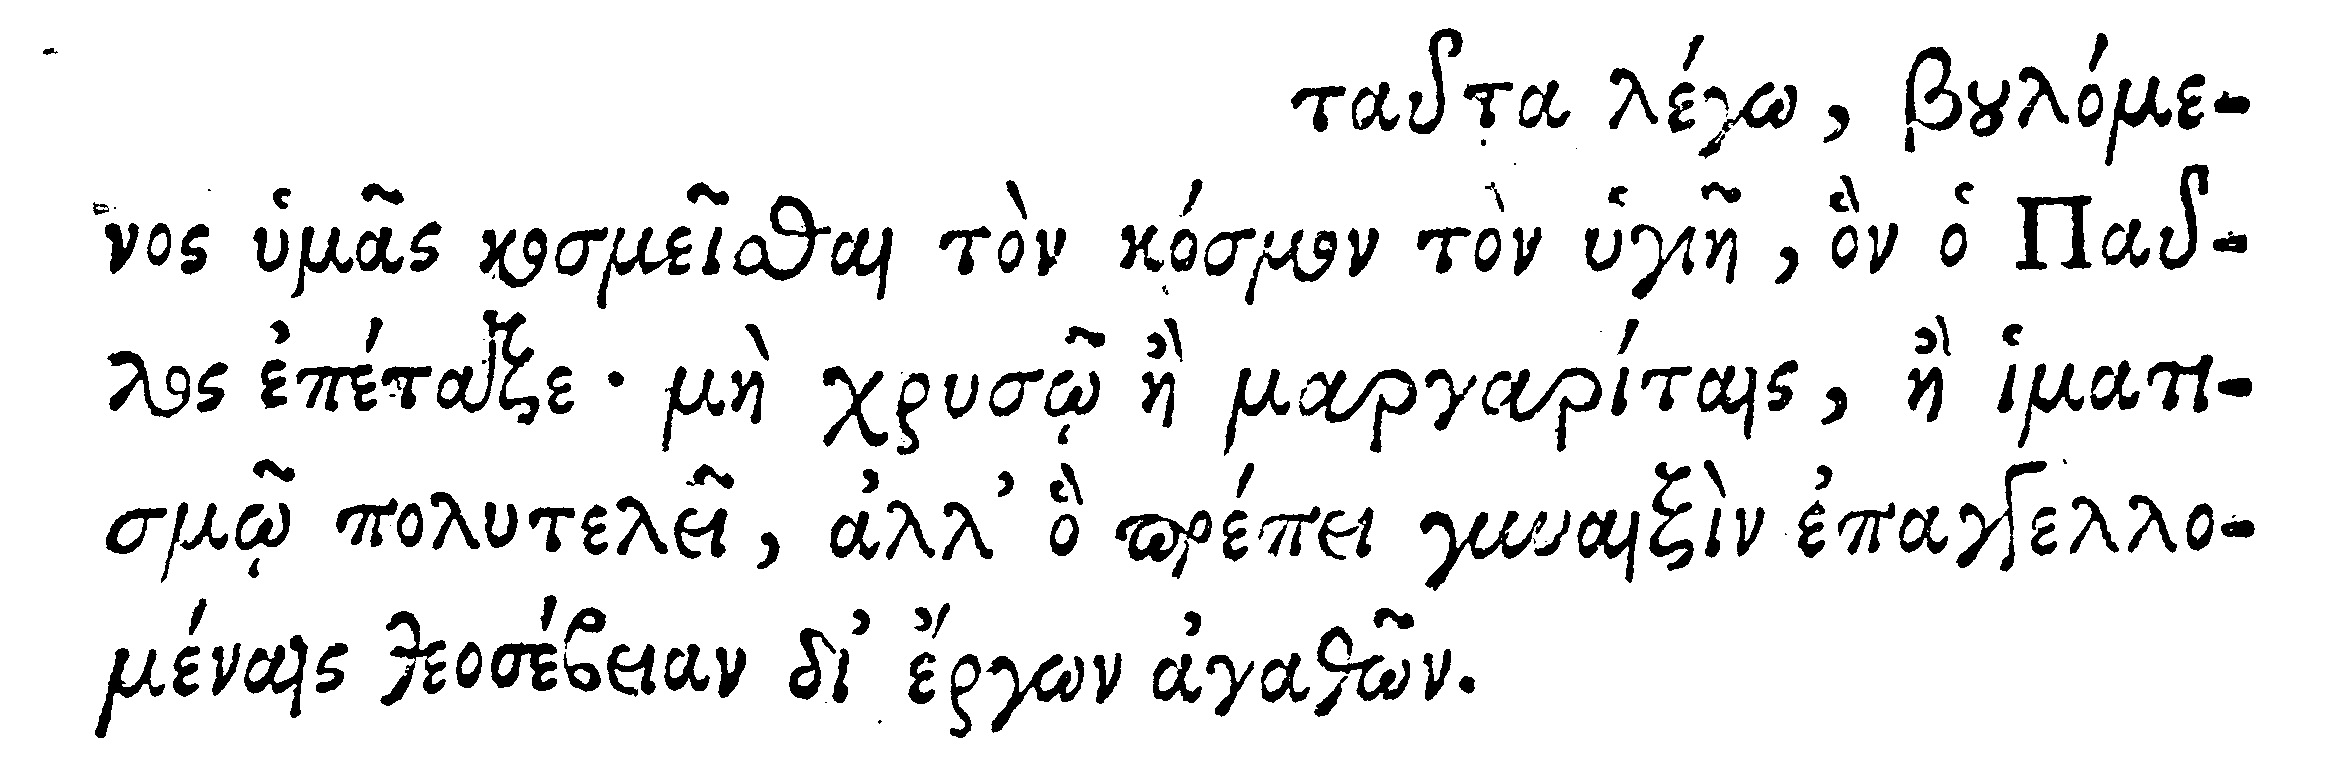 ταῦτα λέγω, βουλόμε-
νος ὑμᾶς κοσμεῖσθαι τὸν κόσμον τὸν ὑγιῆ, ὃν ὁ Παῦ-
λος ἐπέταξε· μὴ χρυσῷ ἢ μαργαρίταις, ἢ ἱματι-
σμῷ πολυτελεῖ, ἀλλ᾽ ὃ πρέπει γυναιξὶν ἐπαγγελλο-
μέναις θεοσέβειαν δι᾽ ἔργων ἀγαθῶν.